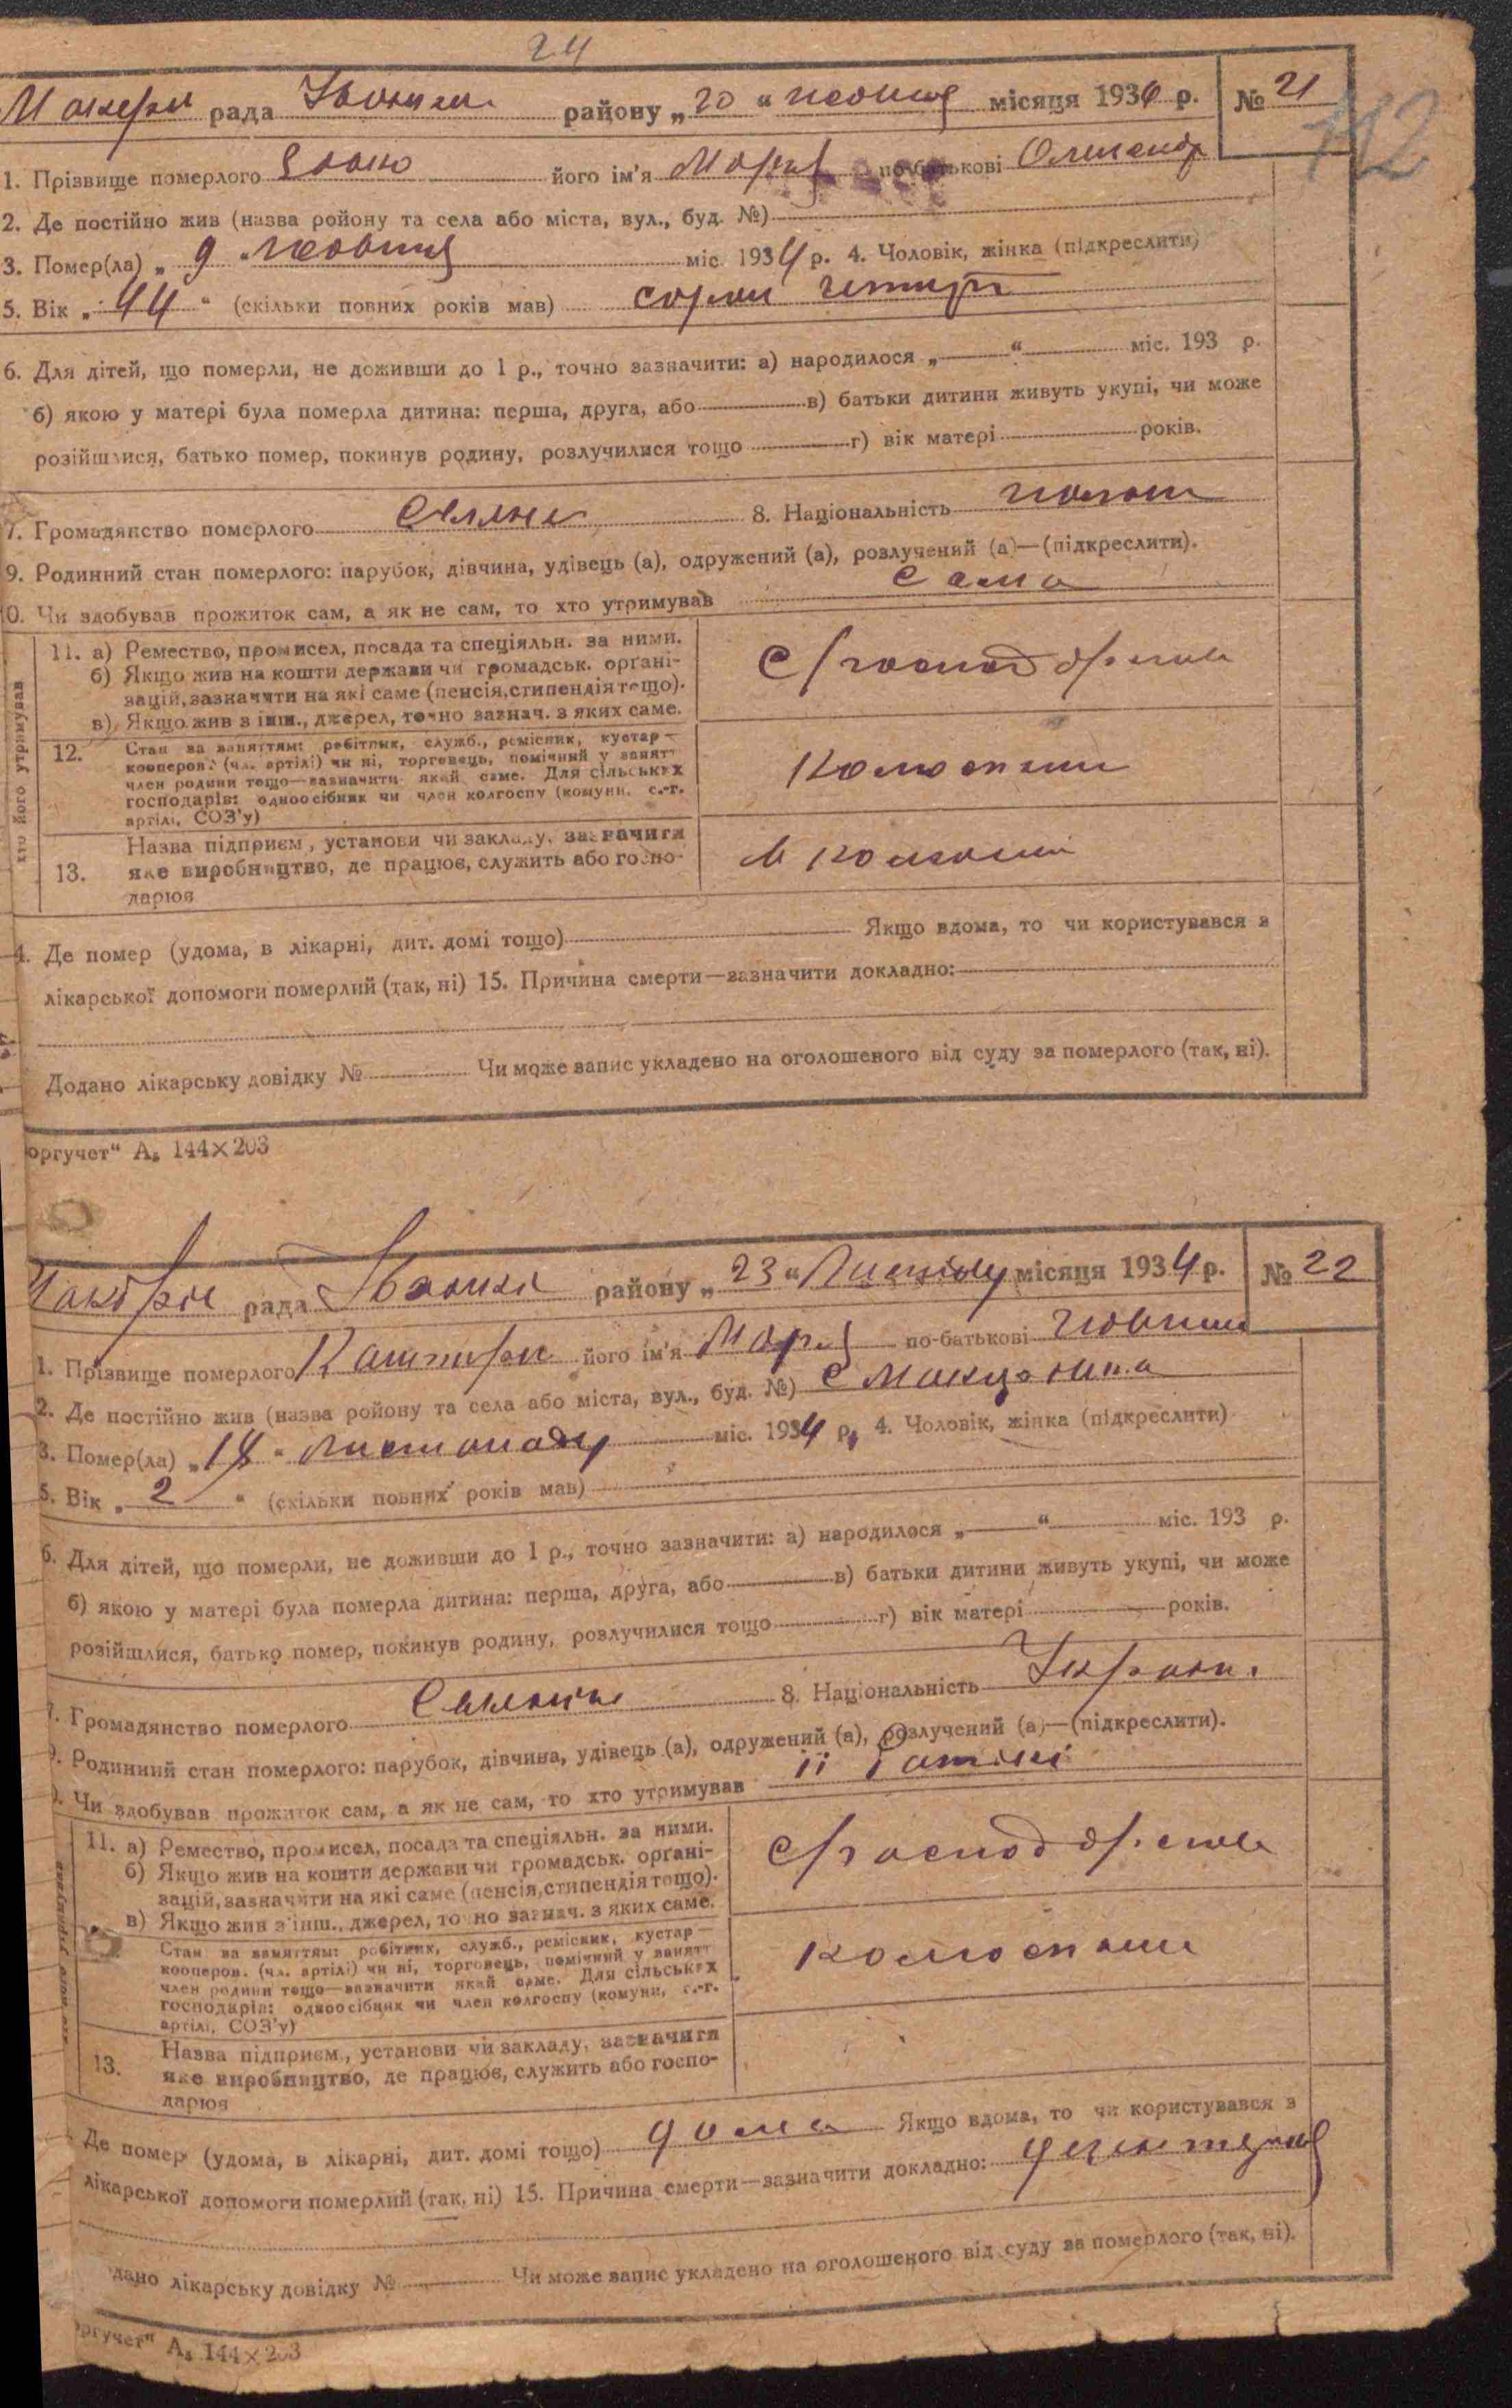 24
рада района „20“ жовтня місяця 1934 р. № 21
112
1. Прізвище померлого його ім'я Марія по-батькові Олександр
2. Де постійно жив (назва ройону та села або міста, вул., буд. №)
3. Помер(ла) „ 9 “ жовтня міс. 1934 р. 4. Чоловік, жінка (підкреслити)
5. Вік „ 44 “ (скільки повних років мав) сорок чотири
6. Для дітей, що померли, не доживши до 1 р., точно зазначити: а) народилося „ “ міс. 193 р.
б) якою у матері була померла дитина: перша, друга, або в) батьки дитини живуть укупі, чи може
розійшлися, батько помер, покинув родину, розлучилися тощо г) вік матері років.
7. Громадянство померлого 8. Національність
9. Родинний стан померлого: парубок, дівчина, удівець (а), одружений (а), розлучений (а)—(підкреслити).
0. Чи здобував прожиток сам, а як не сам, то хто утримував сама
хто його утримував
11. а) Ремество, промисел, посада та спеціяльн. за ними.
б) Якщо жив на кошти держави чи громадськ. органі-
зацій, зазначити на які саме (пенсія, стипендія тощо).
в) Якщо жив з інш., джерел, точно зазнач. з яких саме.
12. Стан за заняттям: робітник, служб., ремісник, кустар—
кооперов. (чл. артілі) чи ні, торговець, помічний у занятт
член родини тощо—зазначити який саме. Для сільських
господарів: одноосібник чи член колгоспу (комуни, с.-г.
артілі, СОЗ'у)
13. Назва підприєм., установи чи закладу, зазначити
яке виробництво, де працює, служить або госпо-
дарює
4. Де помер (удома, в лікарні, дит. домі тощо) Якщо вдома, то чи користувався з
лікарської допомоги померлий (так, ні) 15. Причина смерти—зазначити докладно:
Додано лікарську довідку № Чи може запис укладено на оголошеного від суду за померлого (так, ні).
оргучет“ А₅ 144×203
рада району „ 23 “ місяця 1934 р. № 22
1. Прізвище померлого його ім'я Марія по-батькові
2. Де постійно жив (назва ройону та села або міста, вул., буд. №) с
3. Помер(ла) „ 18 “ листопаду міс. 1934 р. 4. Чоловік, жінка (підкреслити)
5. Вік „ 2 “ (скільки повних років мав)
6. Для дітей, що померли, не доживши до 1 р., точно зазначити: а) народилося „ “ міс. 193 р.
б) якою у матері була померла дитина: перша, друга, або в) батьки дитини живуть укупі, чи може
розійшлися, батько помер, покинув родину, розлучилися тощо г) вік матері років.
7. Громадянство померлого 8. Національність Україн.
9. Родинний стан померлого: парубок, дівчина, удівець (а), одружений (а), розлучений (а)—(підкреслити).
). Чи здобував прожиток сам, а як не сам, то хто утримував її батьки
11. а) Ремество, промисел, посада та спеціяльн. за ними.
б) Якщо жив на кошти держави чи громадськ. органі-
зацій, зазначити на які саме (пенсія, стипендія тощо).
в) Якщо жив з інш., джерел, точно зазнач. з яких саме.
Стан за заняттям: робітник, служб., ремісник, кустар—
кооперов. (чл. артілі) чи ні, торговець, помічний у занятт
член родини тощо—зазначити який саме. Для сільських
господарів: одноосібник чи член колгоспу (комуни, с.-г.
артілі, СОЗ'у)
13. Назва підприєм., установи чи закладу, зазначити
яке виробництво, де працює, служить або госпо-
дарює
Де помер (удома, в лікарні, дит. домі тощо) дома Якщо вдома, то чи користувався з
лікарської допомоги померлий (так, ні) 15. Причина смерти—зазначити докладно:
дано лікарську довідку № Чи може запис укладено на оголошеного від суду за померлого (так, ні).
оргучет“ А₅ 144×203